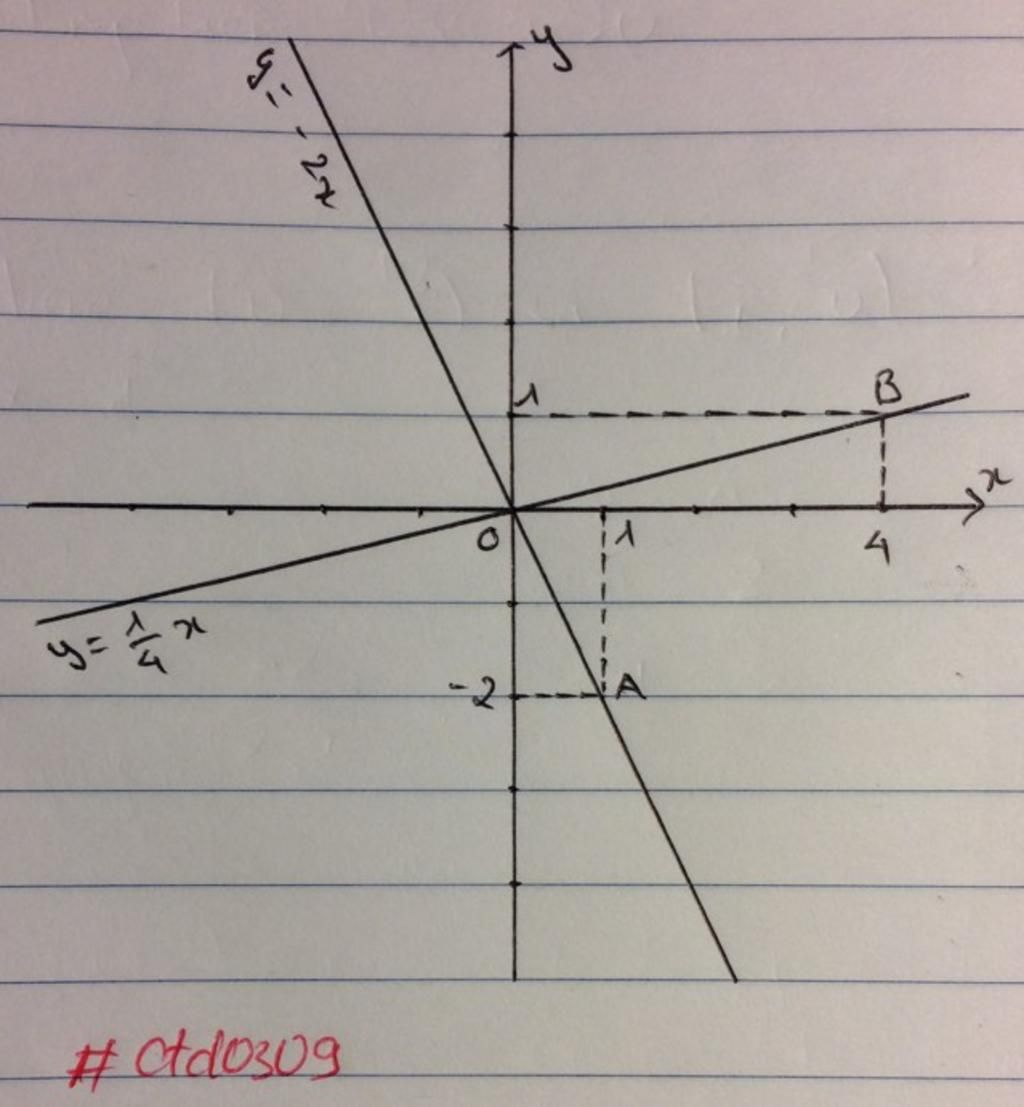 y
y = -2x
1
B
x
0
1
4
y = 1/4 x
-2
A
# ctd0309